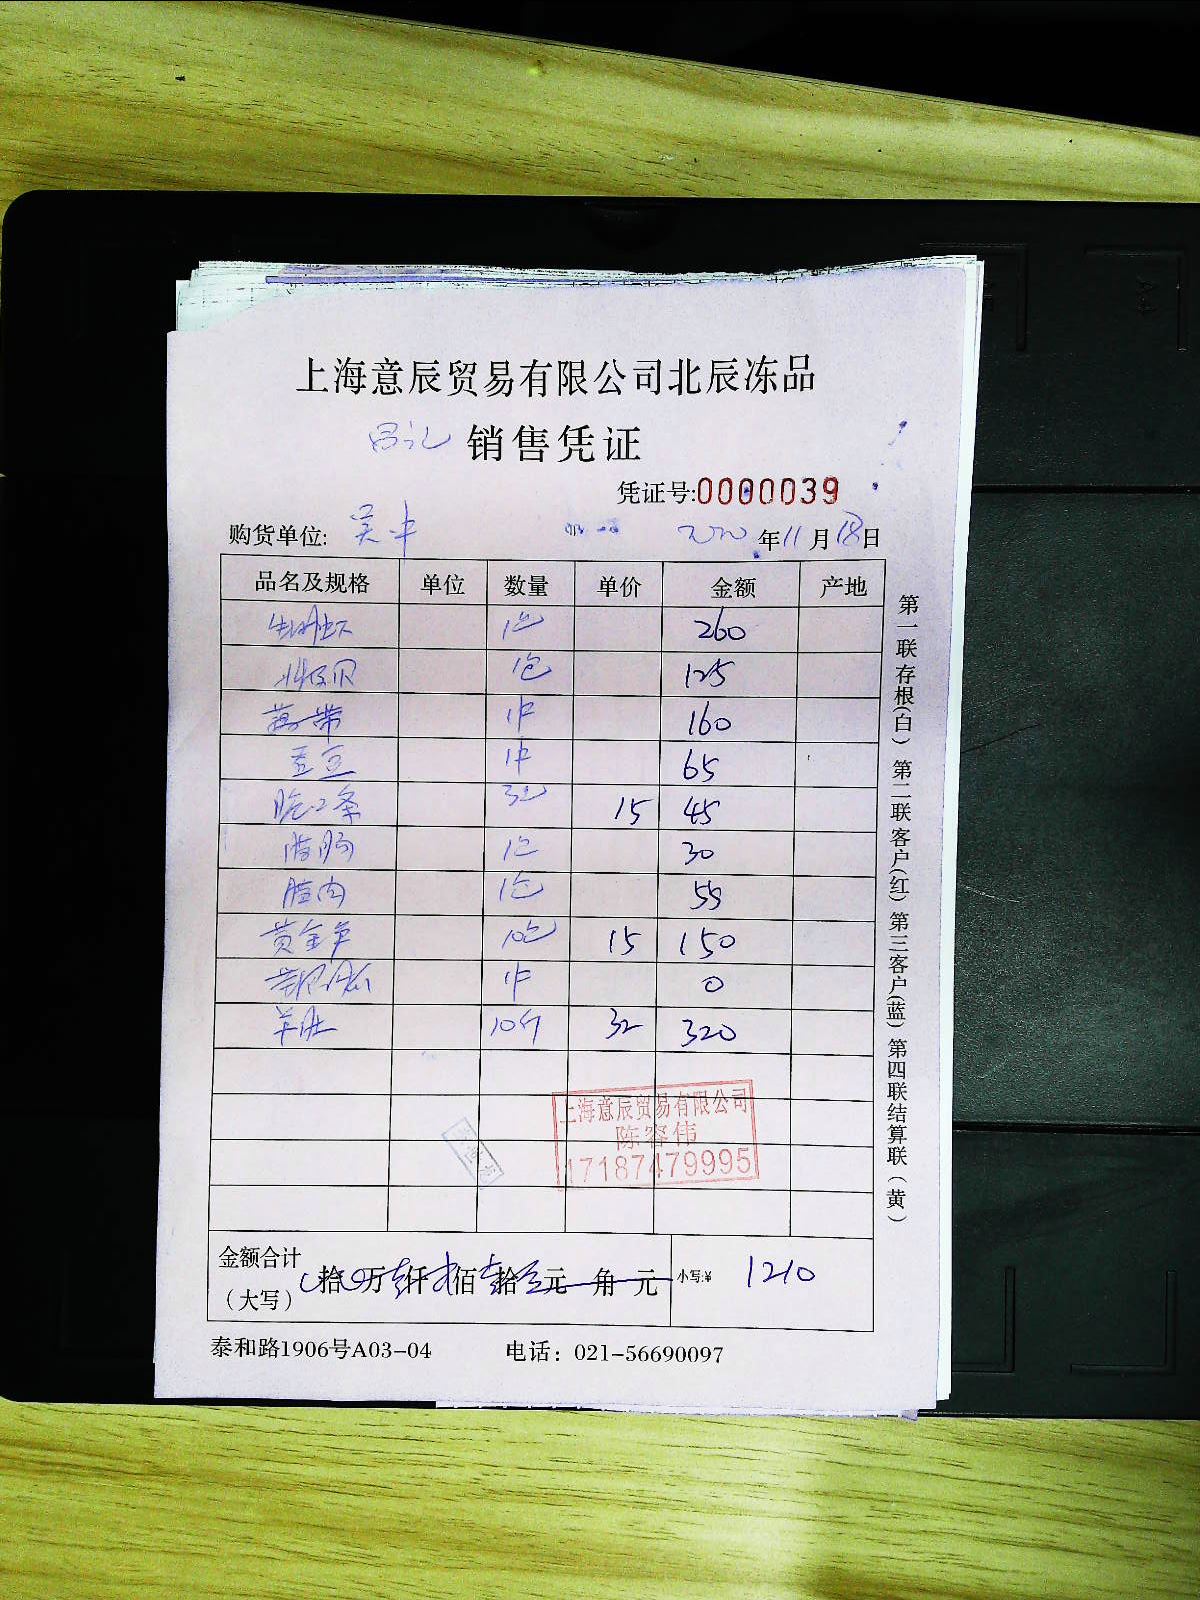 上海意辰贸易有限公司北辰冻品
吕记 销售凭证
凭证号:0000039
购货单位: 吴中 2020年11月18日
品名及规格 单位 数量 单价 金额 产地
1包 260
1包 125
1件 160
1件 65
3包 15 45
1包 30
腊肉 1包 55
黄金 10包 15 150
1件 0
羊肚 10斤 32 320
上海意辰贸易有限公司
陈容伟
17187479995
金额合计
(大写)
拾 万 仟 佰 拾 元 角 元 小写:¥ 1210
泰和路1906号A03-04 电话: 021-56690097
第一联存根(白) 第二联客户(红) 第三客户(蓝) 第四联结算联(黄)